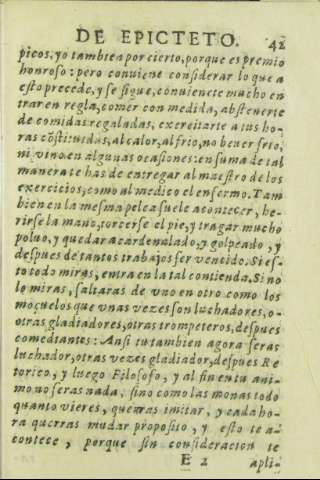 DE EPICTETO. 42
picos, yo tambien por cierto, porque es premio
honroso: pero conuiene considerar lo que a
esto precede, y se sigue, conuienete mucho en
trar en regla, comer con medida, abstenerte
de comidas regaladas, exereitarte a tus ho-
ras cõstituidas, al calor, al frio, no beuer frio,
ni vino en algunas ocasiones: en suma de tal
manera te has de entregar al maestro de los
exercicios, como al medico el enfermo. Tam
bien en la mesma pelea suele acontecer, he-
rirse la mano, torcerse el pie, y tragar mucho
poluo, y quedar acardenalado, y golpeado, y
despues de tantos trabajos ser vencido. Si es-
to todo miras, entra en la tal contienda. Si no
lo miras, saltaras de vno en otro como los
moçuelos que vnas vezes son luchadores, o-
otras gladiadores, otras trompeteros, despues
comediantes: Ansi tu tambien agora seras
luchador, otras vezes gladiador, despues Re
torico, y luego Filosofo, y al fin en tu ani-
mo no seras nada, sino como las monas todo
quanto vieres, querras imitar, y cada ho-
ra querras mudar proposito, y esto te a-
contece, porque sin consideracion te
E 2 apli-